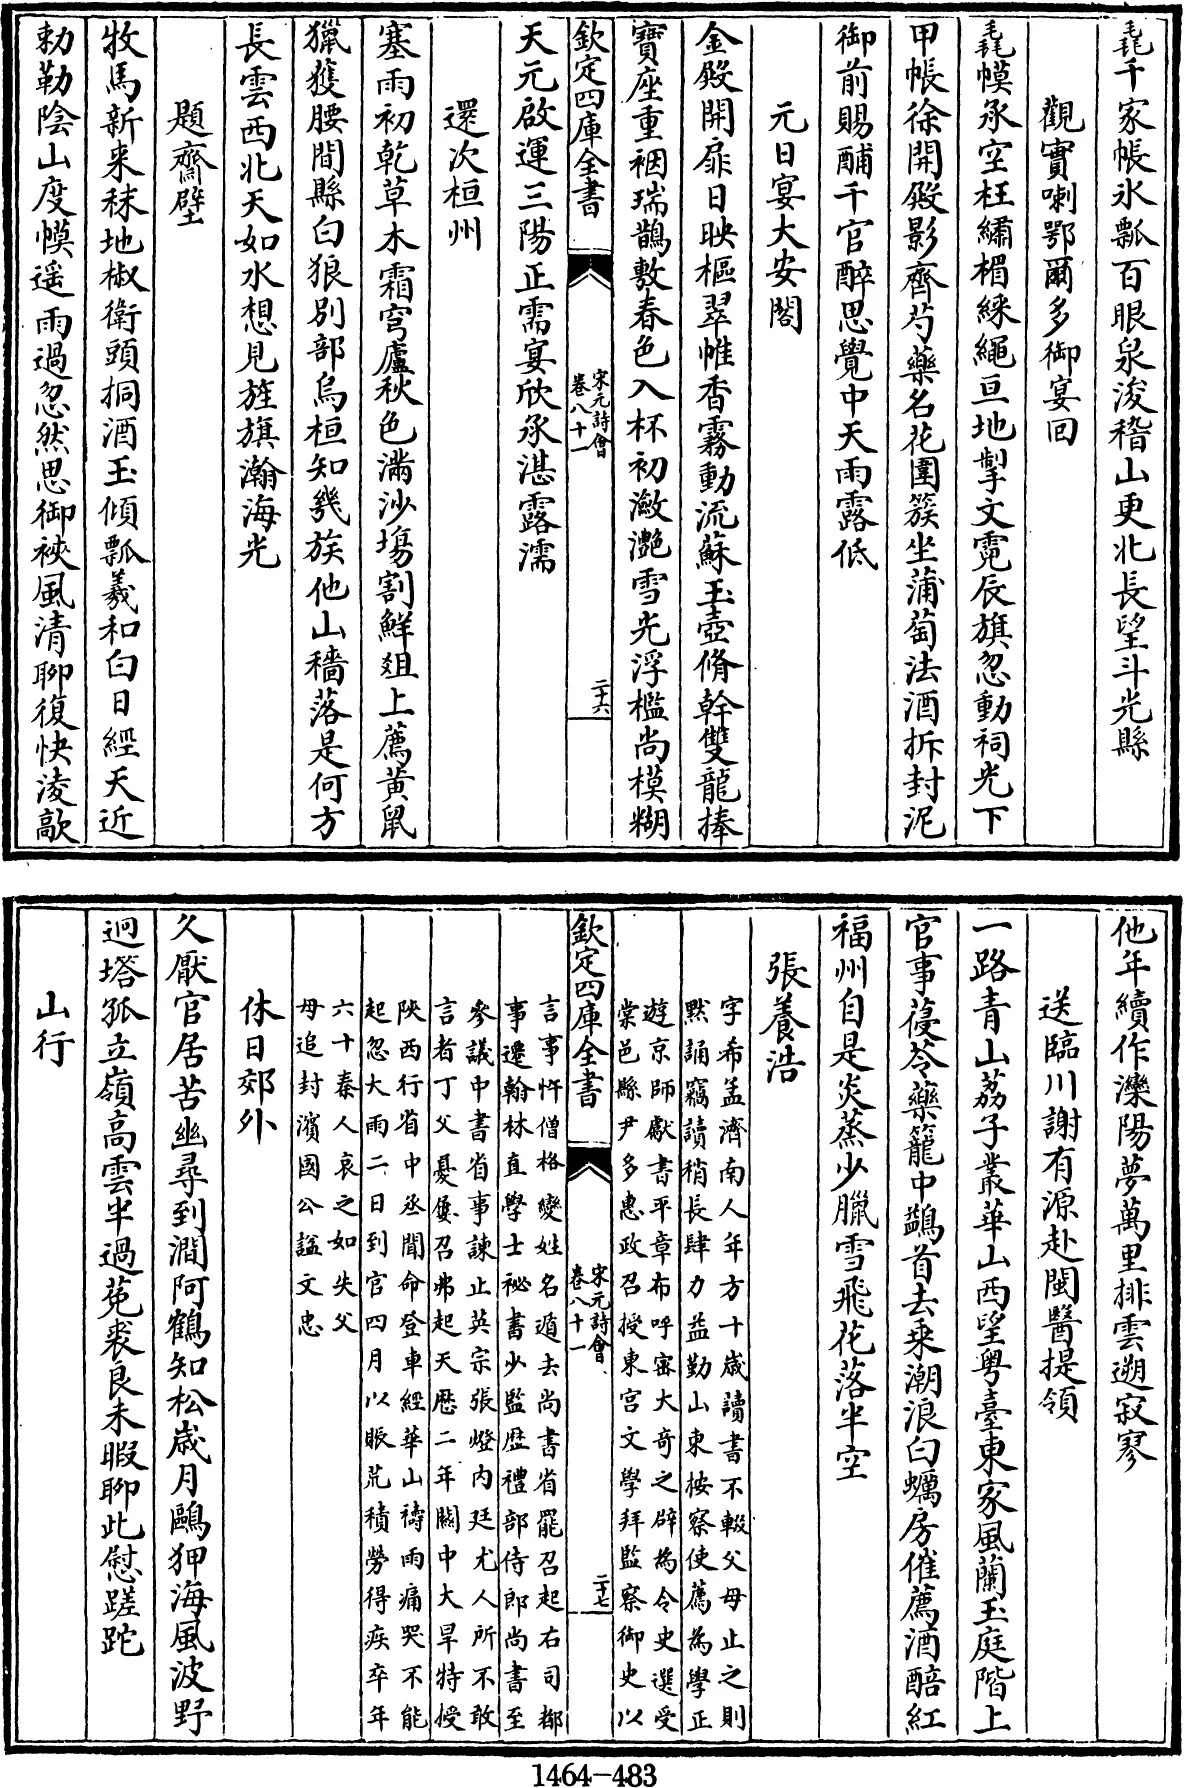 毳千家帳氷瓢百眼泉浚稽山更北長望斗光縣
觀實喇鄂爾多御宴回
毳幙承空柱繡楣綵繩亘地掣文霓辰旗忽動祠光下
甲帳徐開殿影齊芍藥名花圍簇坐蒲萄法酒拆封泥
御前賜酺千官醉思覺中天雨露低
元日宴大安閣
金殿開扉日映樞翠帷香霧動流蘇玉壺脩幹雙龍捧
寳座重裀瑞鵲敷春色入杯初瀲灔雪光浮檻尚模糊
欽定四庫全書
宋元詩會
卷八十一
二十六
天元啟運三陽正需宴欣承湛露濡
還次桓州
塞雨初乾草木霜穹廬秋色滿沙塲割鮮爼上薦黃鼠
獵獲腰間縣白狼別部烏桓知幾族他山穡落是何方
長雲西北天如水想見旌旗瀚海光
題齋壁
牧馬新来秣地椒衛頭挏酒玉傾瓢羲和白日經天近
勅勒陰山度幙遥雨過忽然思御裌風清聊復快淩歊
他年續作灤陽夢萬里排雲遡寂寥
送臨川謝有源赴閩醫提領
一路青山荔子叢華山西望粵臺東家風蘭玉庭階上
官事葠苓藥籠中鷁首去乗潮浪白蠣房催薦酒醅紅
福州自是炎蒸少臘雪飛花落半空
張養浩
字希孟濟南人年方十歲讀書不輟父母止之則
默誦竊讀稍長肆力益勤山東按察使薦為學正
遊京師獻書平章布呼密大奇之辟為令史選受
棠邑縣尹多惠政召授東宮文學拜監察御史以
欽定四庫全書
宋元詩會
卷八十一
二十七
言事忤僧格變姓名遁去尚書省罷召起右司都
事遷翰林直學士秘書少監歴禮部侍郎尚書至
參議中書省事諫止英宗張燈内廷尤人所不敢
言者丁父憂屢召弗起天歴二年關中大旱特授
陜西行省中丞聞命登車經華山禱雨痛哭不能
起忽大雨二日到官四月以賑荒積勞得疾卒年
六十秦人哀之如失父
母追封濱國公諡文忠
休日郊外
久厭官居苦幽尋到澗阿鶴知松歲月鷗狎海風波野
迥塔孤立嶺高雲半過菟裘良未暇聊此慰蹉跎
山行
1464-483